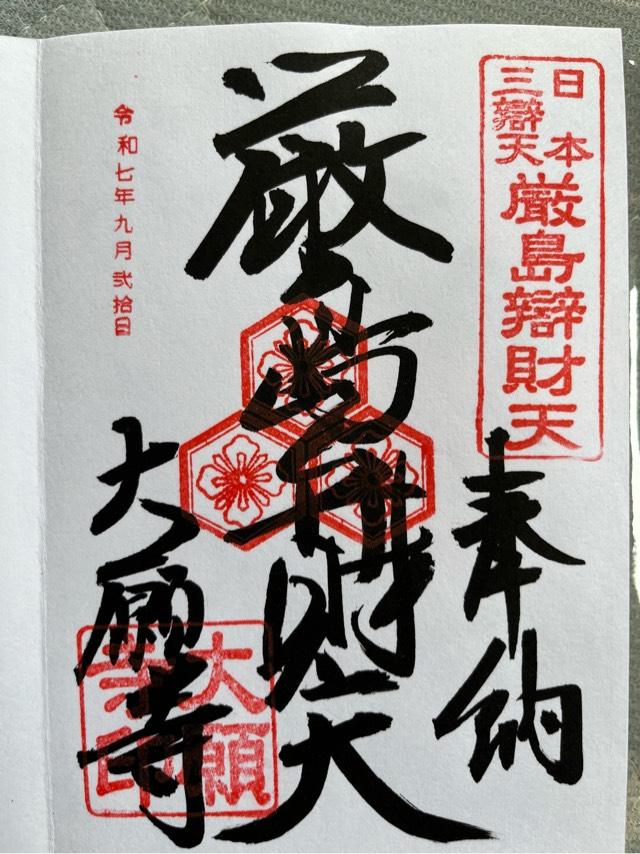 日本
三辯天
厳島辯財天
奉納
厳島弁財天
令和七年九月弐拾日
大願寺
大願
寺印